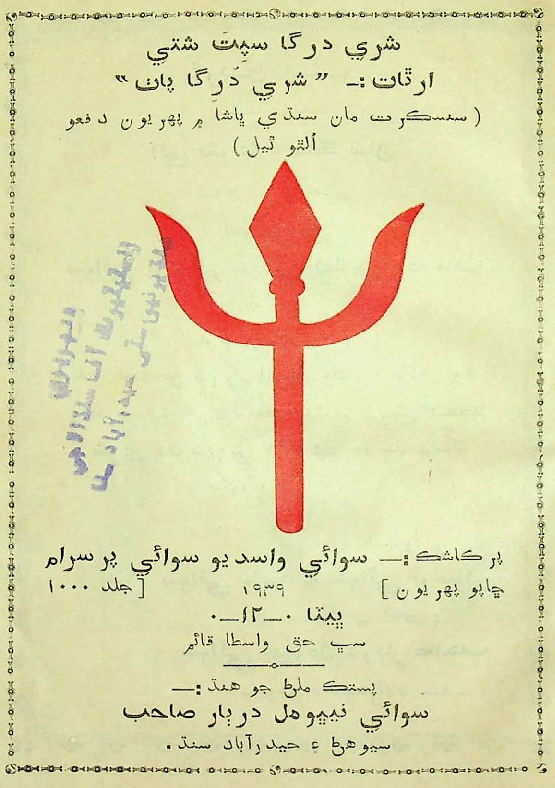 شري درگا سپت شتي
ارٿات :- ”شري دُرگا پاٺ“
(سنسڪرت مان سنڌي ڀاشا ۾ پهريون دفعو
اُلٿو ٿيل)
پرڪاشڪ :— سوائي واسديو سوائي پرسرام
ڇاپو پهريون] ١٩٣٩ [جلد ١٠٠٠
ڀيٽا ٠—١٢—٠
سڀ حق واسطا قائم
پستڪ ملڻ جو هنڌ :—
سوائي نيڀومل دربار صاحب
سيوهڻ ۽ حيدرآباد سنڌ.